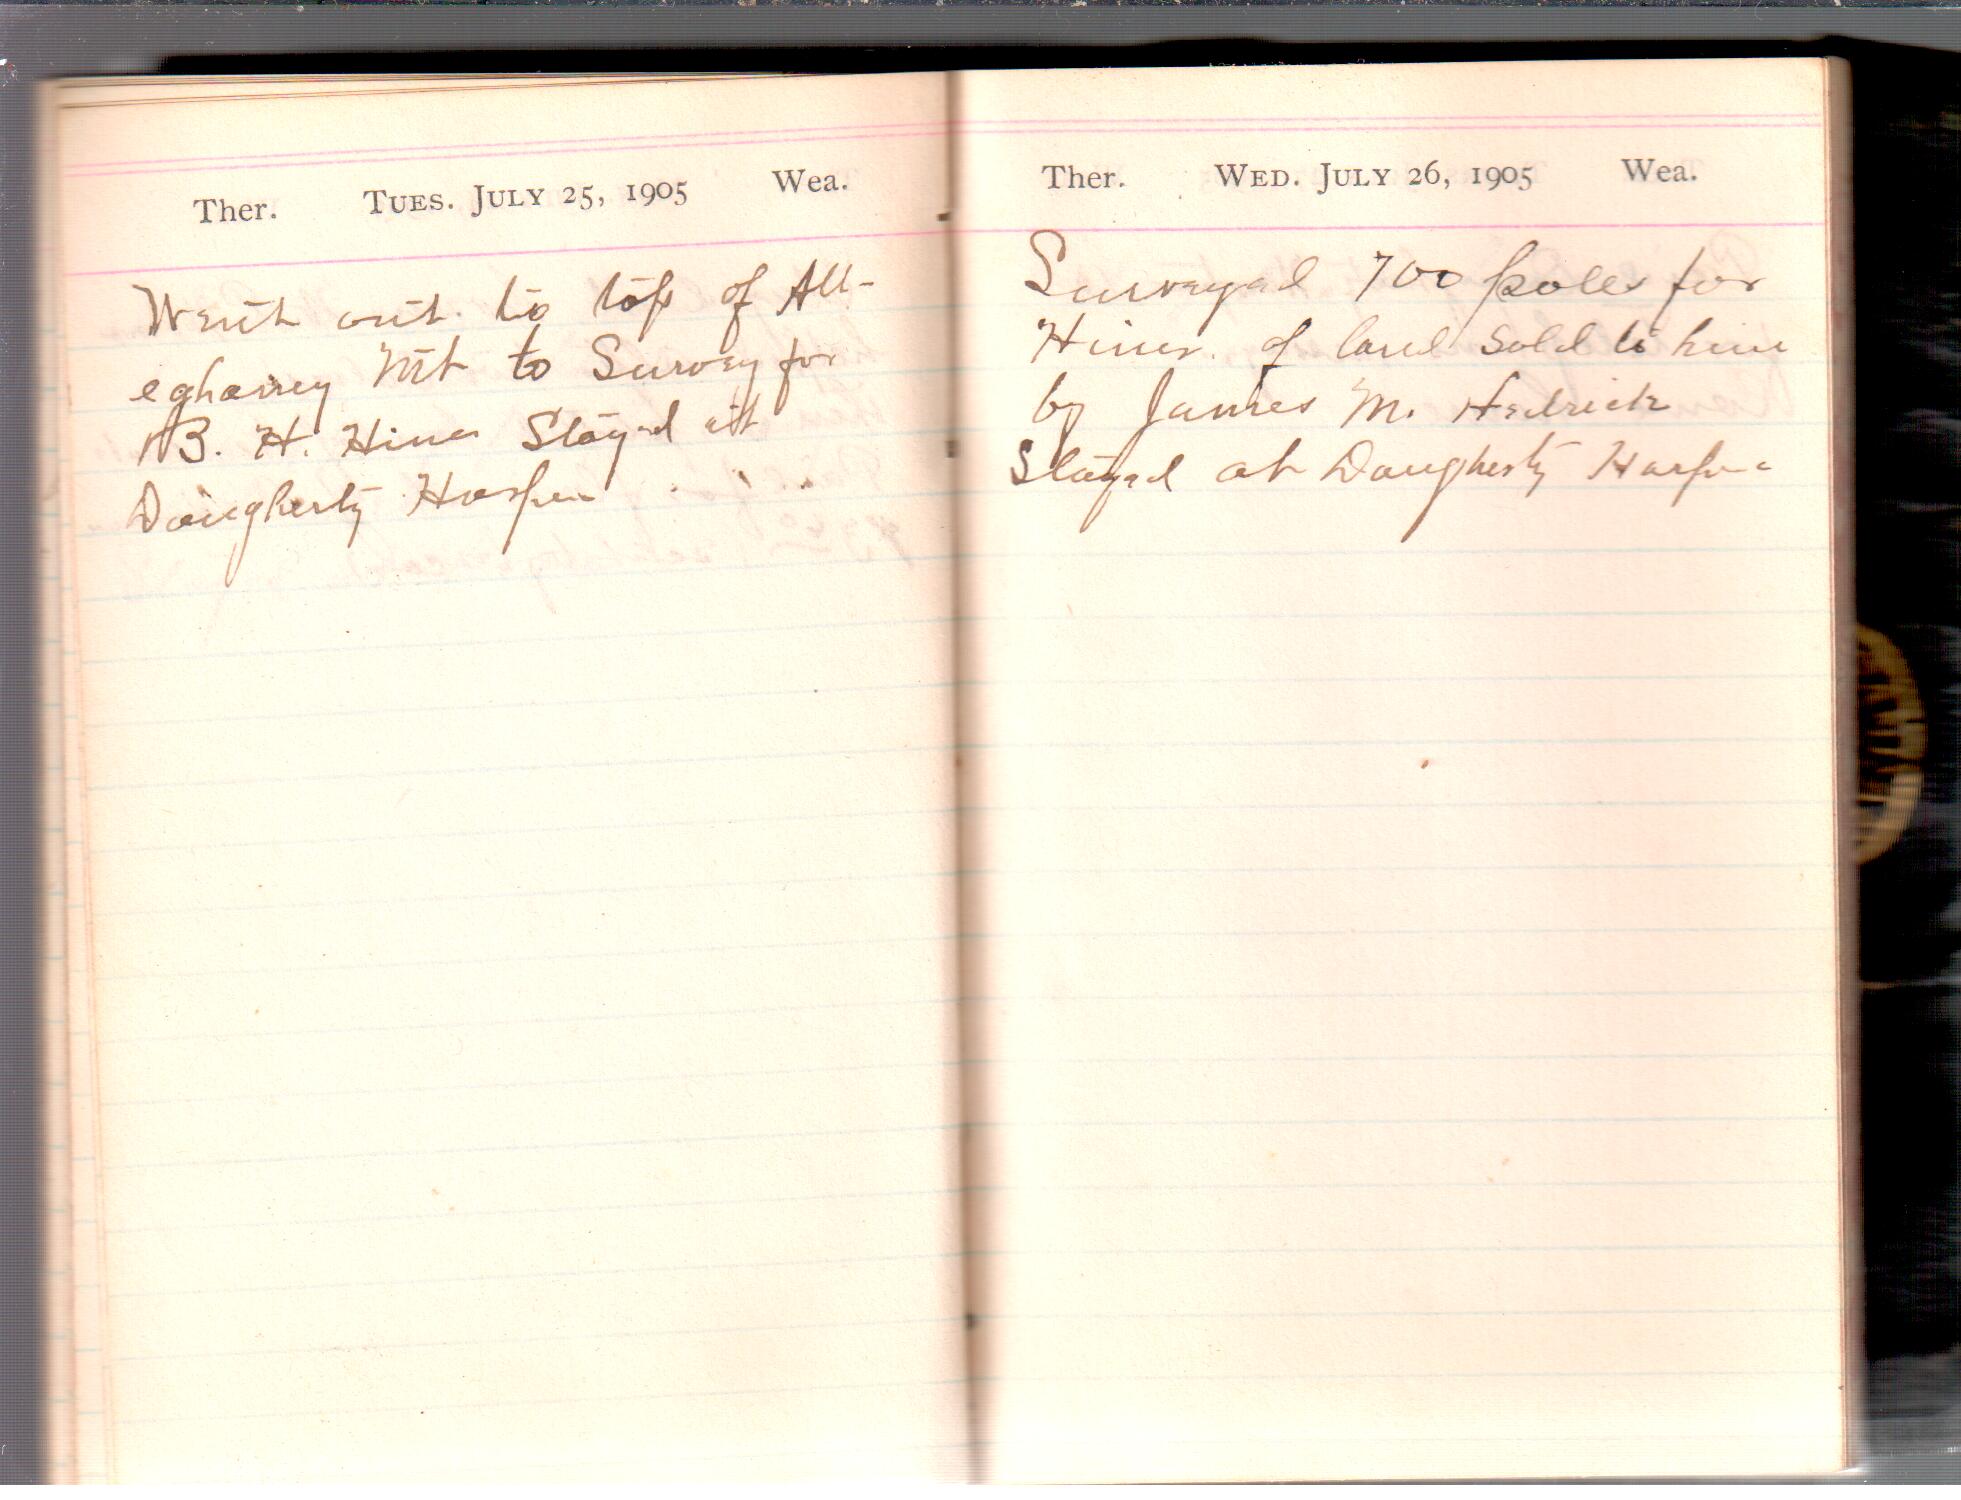 Ther. TUES. JULY 25, 1905 Wea.
Went out to top of All-
eghaney Mt to Survey for
B. H. Hiner Stayed at
Dougherty Harper
Ther. WED. JULY 26, 1905 Wea.
Surveyed 700 poles for
Hiner. of land sold to him
by James M. Hedrick
Stayed at Dougherty Harper